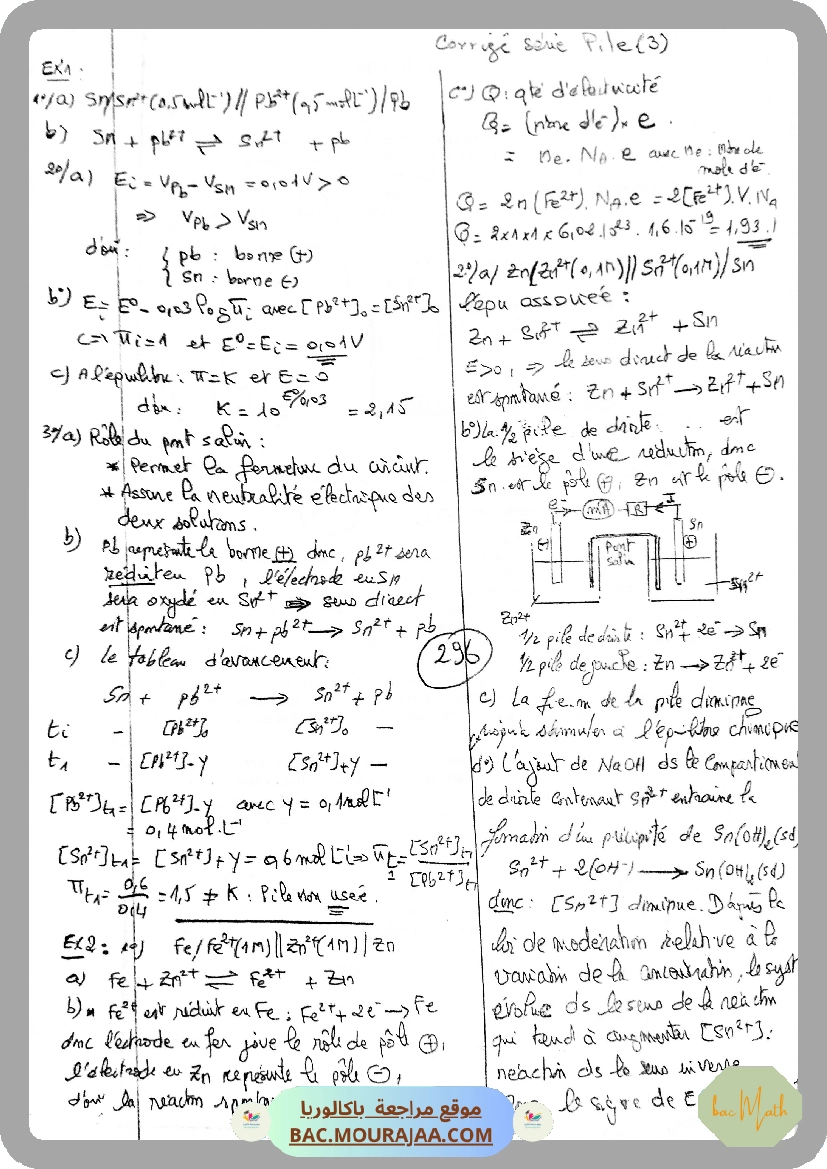 Corrigé série Pile (3)
EX1 :
1°/a) Sn/Sn²⁺(0,5molL⁻¹) // Pb²⁺(0,5molL⁻¹)/Pb
b) Sn + Pb²⁺ ⇌ Sn²⁺ + Pb
2°/a) Ei = VPb - VSn = 0,01V > 0
⇒ VPb > VSn
d'où : { Pb : borne (+)
{ Sn : borne (-)
b°) Ei = E° - 0,03 log πi avec [Pb²⁺]₀ = [Sn²⁺]₀
⇒ πi = 1 et E° = Ei = 0,01V
c) A l'équilibre : π = K et E = 0
d'où : K = 10^E°/0,03 = 2,15
3°/a) Rôle du pont salin :
* Permet la fermeture du circuit.
* Assure la neutralité électrique des
deux solutions.
b) Pb représente la borne (+) donc, Pb²⁺ sera
réduit en Pb, l'électrode en Sn
sera oxydé en Sn²⁺ ⇒ sens direct
est spontané : Sn + Pb²⁺ → Sn²⁺ + Pb
c) le tableau d'avancement :
Sn + Pb²⁺ → Sn²⁺ + Pb
ti - [Pb²⁺]₀ [Sn²⁺]₀ -
t1 - [Pb²⁺]-y [Sn²⁺]+y -
[Pb²⁺]t1 = [Pb²⁺]-y avec y = 0,1molL⁻¹
= 0,4mol.L⁻¹
[Sn²⁺]t1 = [Sn²⁺]+y = 0,6molL⁻¹ ⇒ πt1 = [Sn²⁺]t1 / [Pb²⁺]t1
πt1 = 0,6/0,4 = 1,5 ≠ K : Pile non usée.
EX2 : 1°) Fe/Fe²⁺(1M) || Zn²⁺(1M) | Zn
a) Fe + Zn²⁺ ⇌ Fe²⁺ + Zn
b) Fe²⁺ est réduit en Fe : Fe²⁺ + 2e⁻ → Fe
donc l'électrode en fer joue le rôle de pôle (+),
l'électrode en Zn représente le pôle (-),
d'où la réaction
296
c°) Q : qté d'électricité
Q = (nbre d'é) × e.
= ne. NA. e avec ne : nbre de
mole d'é
Q = 2n(Fe²⁺). NA.e = 2[Fe²⁺].V.NA
Q = 2×1×1×6,02.10²³. 1,6.10⁻¹⁹ = 1,93.1
2°)a/ Zn/Zn²⁺(0,1M) || Sn²⁺(0,1M)/Sn
l'équ associée :
Zn + Sn²⁺ ⇌ Zn²⁺ + Sn
E>0, ⇒ le sens direct de la réaction
est spontané : Zn + Sn²⁺ → Zn²⁺ + Sn
b°) La 1/2 pile de droite est
le siège d'une réduction, donc
Sn est le pôle (+), Zn est le pôle (-).
e⁻ mA R I
Zn (-) Pont salin Sn (+)
Zn²⁺ Sn²⁺
1/2 pile de droite : Sn²⁺ + 2e⁻ → Sn
1/2 pile de gauche : Zn → Zn²⁺ + 2e⁻
c) La f.e.m de la pile diminue
jusqu'à s'annuler à l'équilibre chimique
d°) L'ajout de NaOH ds le Compartiment
de droite contenant Sn²⁺ entraine la
formation d'un précipité de Sn(OH)₂(sd)
Sn²⁺ + 2(OH⁻) → Sn(OH)₂(sd)
donc : [Sn²⁺] diminue. D'après la
loi de modération relative à la
variation de la concentration, le syst
évolue ds le sens de la réaction
qui tend à augmenter [Sn²⁺] :
réaction ds le sens inverse
le signe de E
موقع مراجعة باكالوريا
BAC.MOURAJAA.COM
bac Math